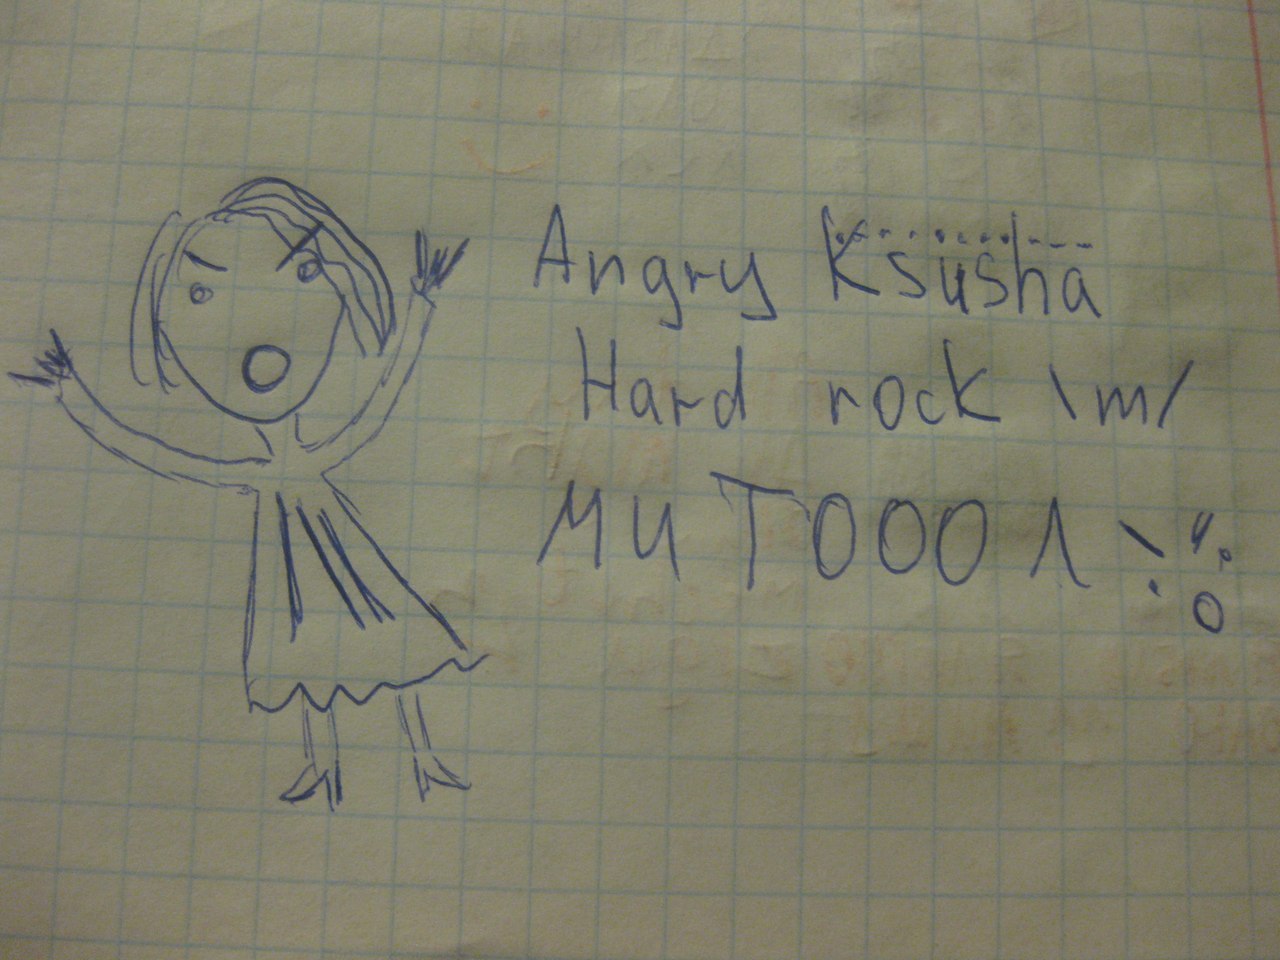 Angry Ksusha
Hard rock \m/
МИ ТОООЛ !